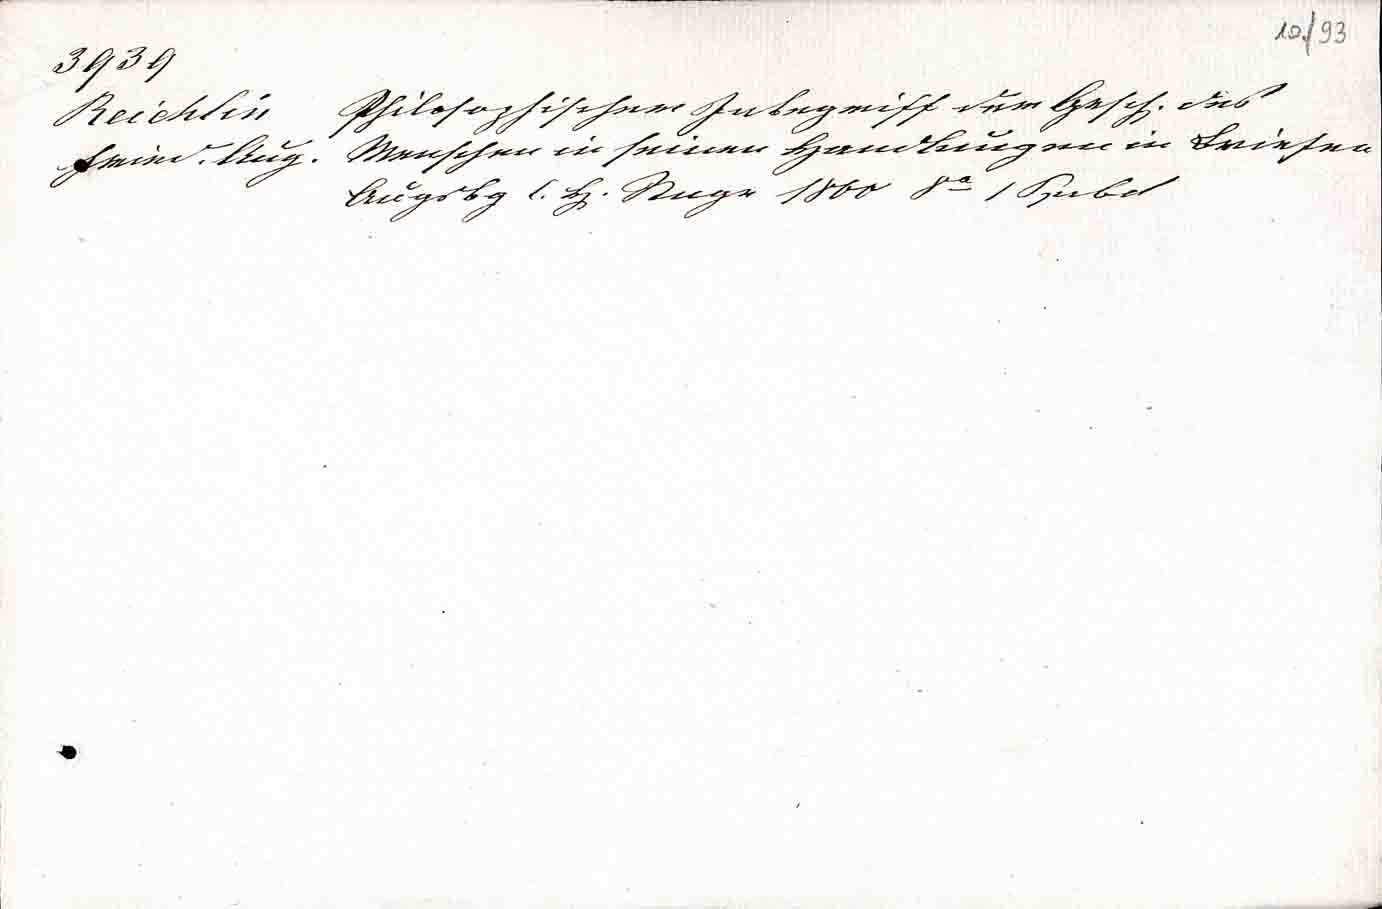 10./93
3939
Reichlin Philosophischer Inbegriff der Gesch. des
Fried. Aug. Menschen in seinen Handlungen in Briefen
Augsbg C. H. Stage 1800 8º 1 Hubd